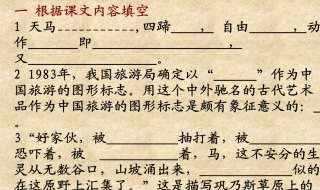 一 根据课文内容填空
1 天马-------------,四蹄____， 自由______,动
作______即__________________,
又______________。
2 1983年，我国旅游局确定以“_____”作为中
国旅游的图形标志。用这个中外驰名的古代艺术
品作为中国旅游的图形标志是颇有象征意义的:_
。
3“好家伙，被_________抽打着，被_____
恐吓着，被 _________着，马，这不安分的生
灵从无数谷口，山坡涌出来，__________似的
在这原野上汇集了。”这是描写巩乃斯草原上的